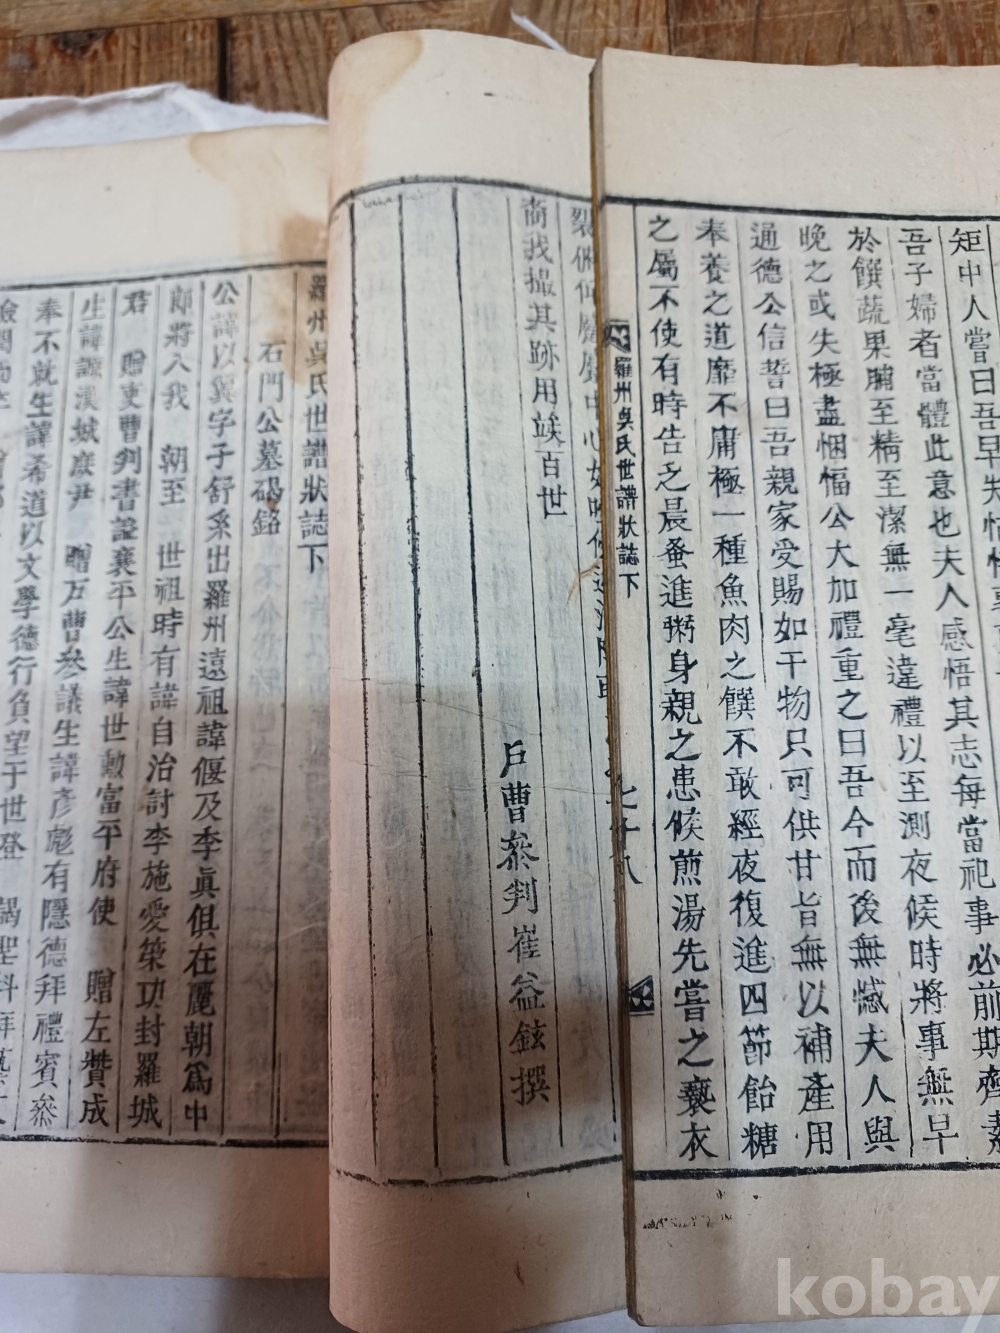 矩中人嘗曰吾早失
吾子婦者當體此意也夫人感悟其志每當祀事必前期齊素
於饌蔬果腩至精至潔無一毫違禮以至測夜候時將事無早
晚之或失極盡悃愊公大加禮重之曰吾今而後無憾夫人與
通德公信誓曰吾親家受賜如干物只可供甘旨無以補產用
奉養之道靡不庸極一種魚肉之饌不敢經夜復進四節飴糖
之屬不使有時告乏晨蚤進粥身親之患候煎湯先嘗之褻衣
羅州吳氏世譜狀誌下
七十八
裂俯仰
裔我撮其跡用竢百世
戶曹叅判崔益鉉撰
羅州吳氏世譜狀誌下
石門公墓碣銘
公諱以翼字子舒系出羅州遠祖諱偃及季眞俱在麗朝爲中
郎將入我 朝至 世祖時有諱自治討李施愛策功封羅城
君 贈吏曹判書諡襄平公生諱世勳富平府使 贈左贊成
生諱謙漢城庶尹 贈戶曹叅議生諱彥彪有隱德拜禮賓叅
奉不就生諱希道以文學德行負望于世登 謁聖科拜
kobay